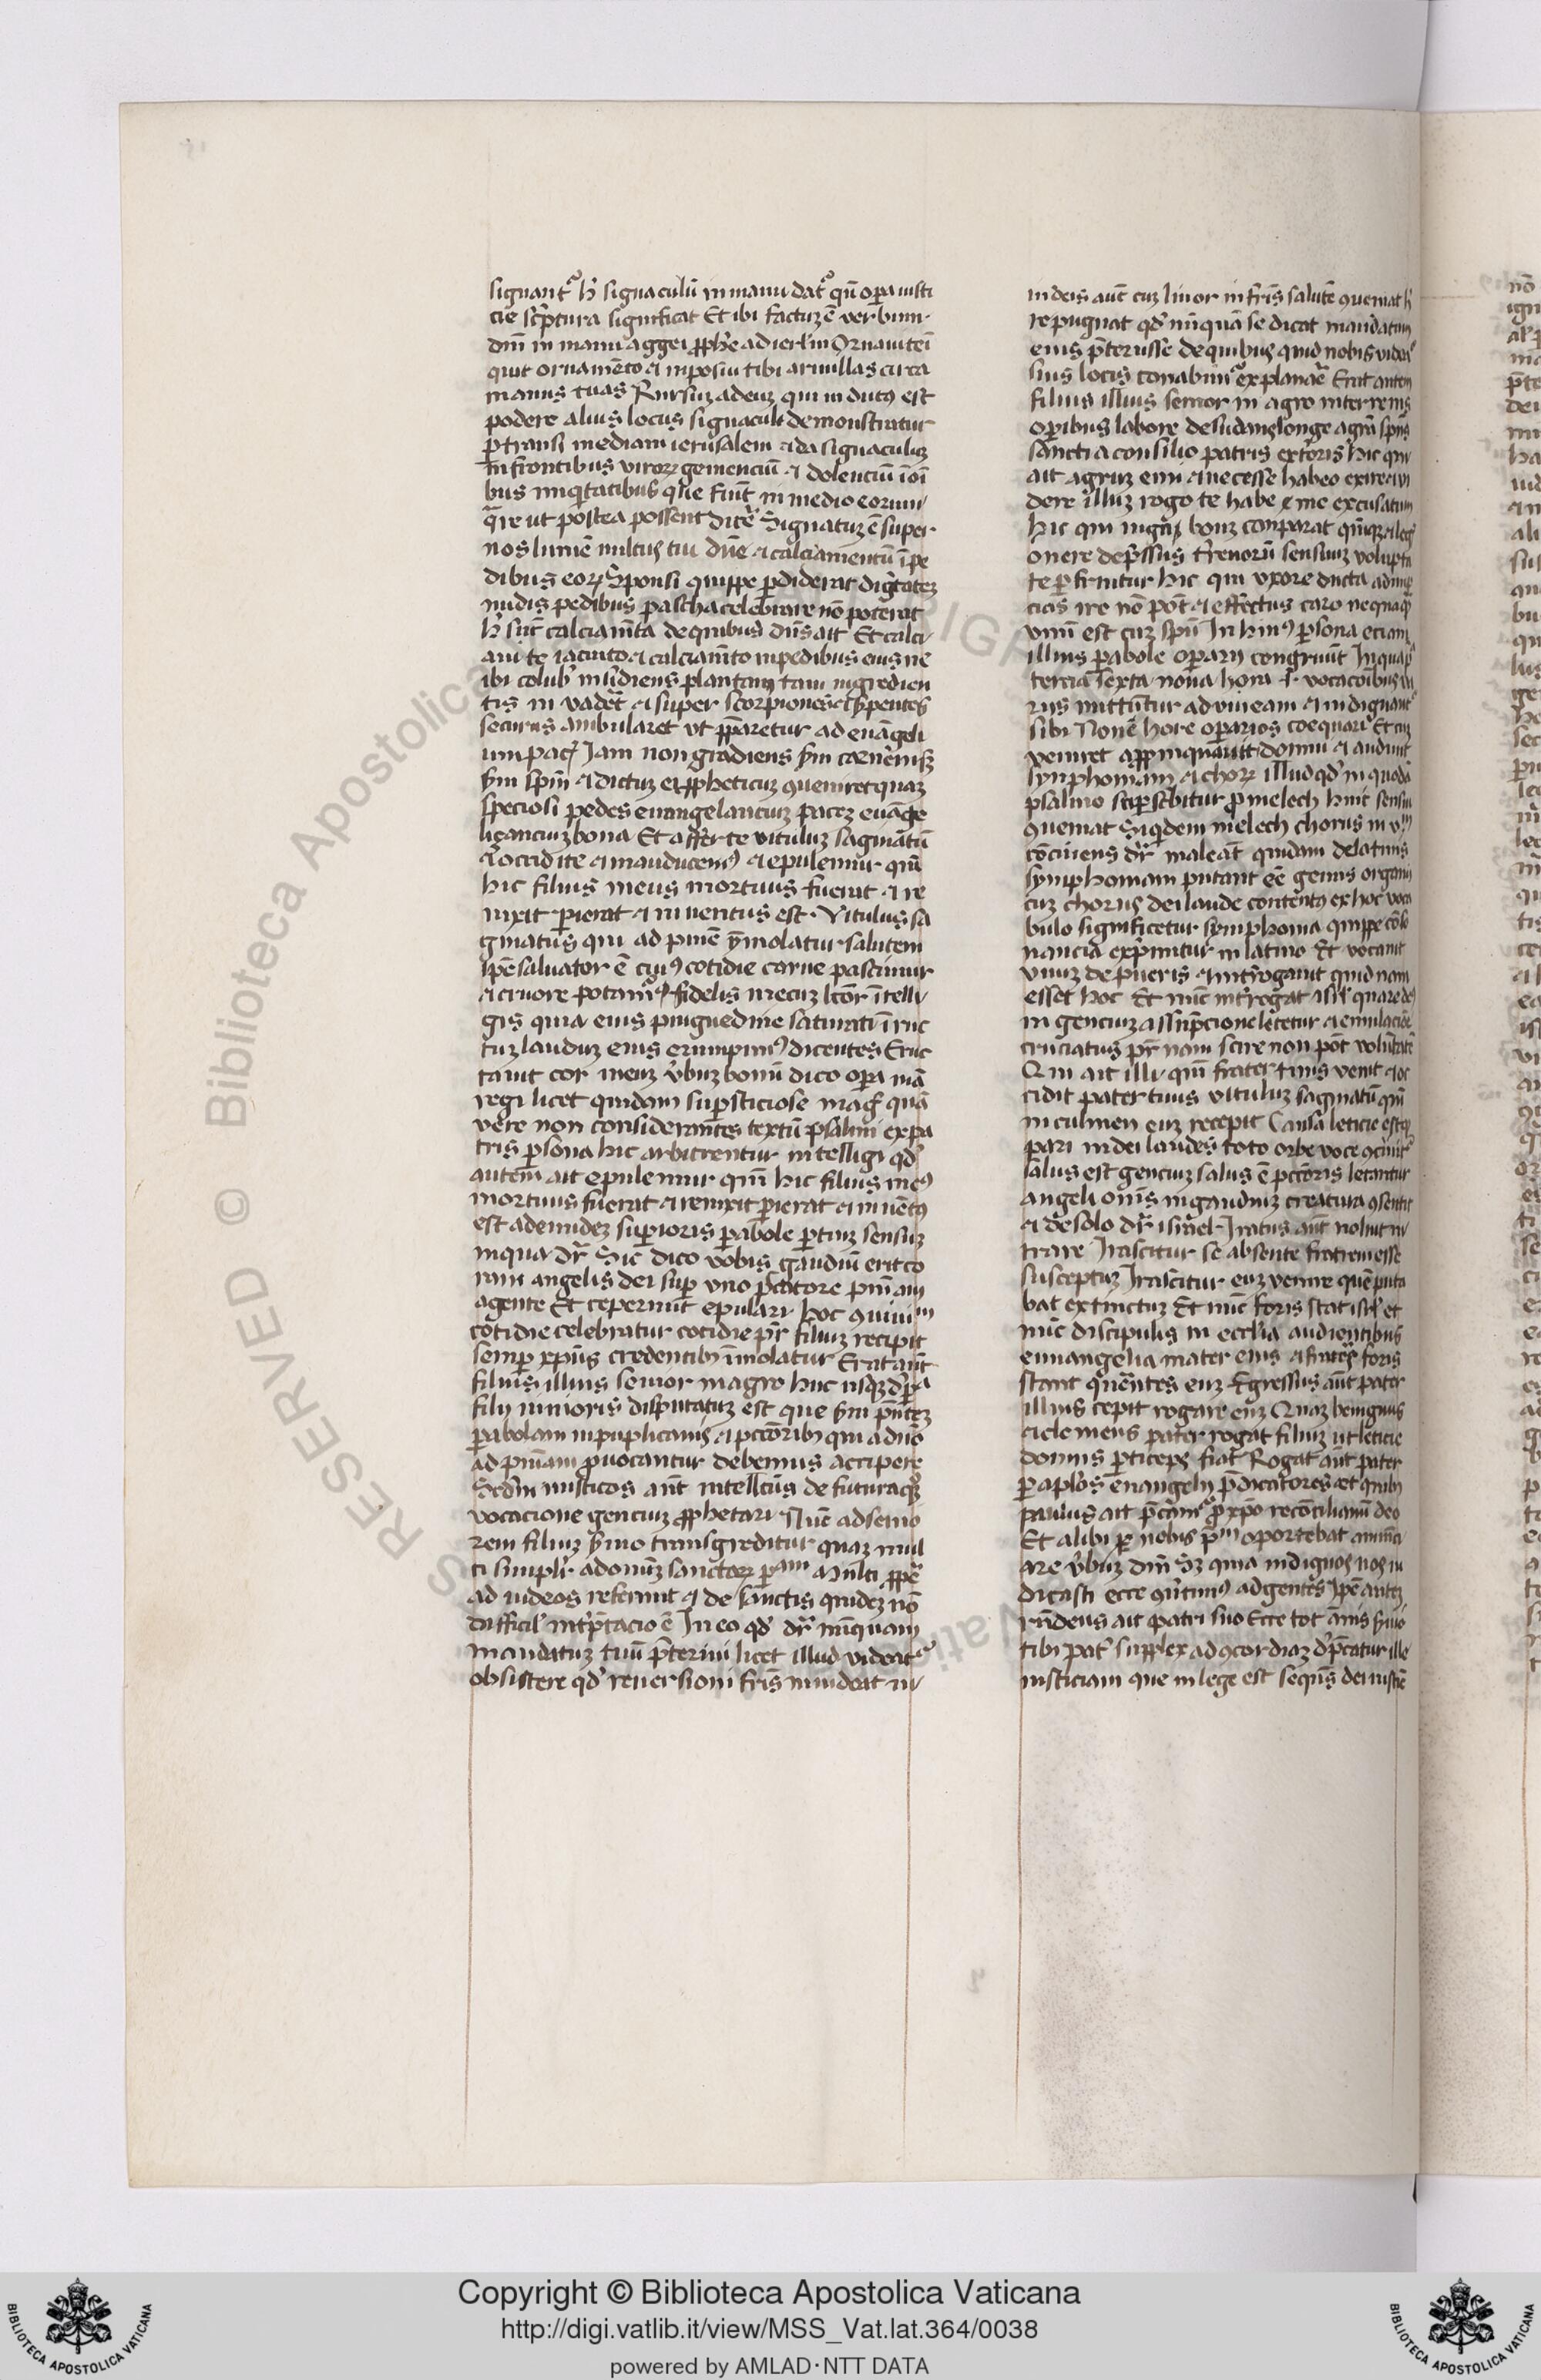 signant᷑ h̓ signaculū in manu dat᷑ qn̄ oꝑa iusti
cie sc̓ptura significat Et ibi factuꝫ ē verbum
dn̄i in manu aggei ꝓph̓e ad ierl̓m Ornaui te ī
quit ornamēto ⁊ inposui tibi armillas circa
manus tuas Rursuꝫ ad euꝫ qui indutꝰ est
podere alius locus signaculi demonstratur
ꝑtransi mediam ierusalem ⁊ da signaculuꝫ
in frontibus viroꝝ gemenciū ⁊ dolenciū ī oī
bus iniq̓tatibus q̄ fiūt in medio eorum
q̄re ut postea possent dic̓e Signatuꝫ ē super
nos lumē vultus tui dn̄e ⁊ calciamentū ī pe
dibus eoꝝ Sponsi quippe ꝑdiderat dig̓tateꝫ
nudis pedibus pascha celebrare nō poterat
h̓ sūt calciam̄ta de quibus dn̄s ait Et calci
aui te iacincto ⁊ calciam̄to in pedibus eius ne
ibi colub̓ insidiens plantam tam ingredien
tis in vad̓et ⁊ super scorpiones ⁊ s̓pentes
securus ambularet ut p̄pararetur ad euāgeli
um pac̓ Jam non gradiens s̄m carnē niſꝫ
s̄m spm̄ ⁊ dictuꝫ ei ꝓpheticuꝫ ꝯueniret quaꝫ
speciosi pedes euangelanciuꝫ paceꝫ euāge
lizanciuꝫ bona Et afferte vituluꝫ saginatū
⁊ occidite ⁊ manducemꝰ ⁊ epulemur qm̄
hic filius meus mortuus fuerat ⁊ re
uixit ꝑierat ⁊ inuentus est. Vitulus sa
ginatus qui ad pn̄iē ymolatur salutem
ip̄e saluator ē cuiꝰ cotidie carne pascimur
⁊ cruore potamꝰ fidelis mecuꝫ lcōr ītelli
gis quia eius pinguedine saturati ī ruc
tuꝫ lauduꝫ eius erumpimꝰ dicentes Eruc
tauit cor meuꝫ v̓buꝫ bonū dico oꝑa mā
regi licet quidam suꝑsticiose mag̓ quā
vere non considerantes textū psalmi ex pa
tris ꝑsona hic arbitrentur intelligi qd̓
autem ait epulemur qm̄ hic filius meꝰ
mortuus fuerat ⁊ reuixit ꝑierat ⁊ inuētꝰ
est ad eundeꝫ suꝑioris ꝑabole ꝑtinꝫ sensuꝫ
in qua dr̄ Sic dico vobis gaudiū erit co
ram angelis dei suꝑ vno pc̄catore pn̄iam
agente Et ceperunt epulari hoc ꝯuiuiᵐ
cotidie celebratur cotidie pr̄ filiuꝫ recipit
semꝑ xp̄us credentibꝫ īmolatur Erat aūt
filius illius senior in agro huc usqꝫ
filij iunioris disputatuꝫ est que s̄m pn̄teꝫ
ꝑabolam in puplicanis ⁊ pccōribꝫ qui a dn̄o
ad pn̄iam ꝓuocantur debemus accipere
Sed̓m misticos aūt intellcūs de futura
vocacione genciuꝫ ꝓphetari Nūc ad senio
rem filiuꝫ s̓mo transgreditur quaꝫ mul
ti simplr̄ ad om̄iuꝫ sanctoꝝ ꝑᵃᵐ Multi ꝓpe᷑
ad iudeos referunt ⁊ de sanctis quideꝫ nō
difficil̓ int̓p̄tacio ē In eo qd̓ dr̄ nūquam
mandatuꝫ tuū p̄teriui licet illud videat᷑
obsistere qd̓ reuersioni fr̄is inuideat in
iudeis aūt cuꝫ liuor in fr̄is salutē ꝯueniat h̓
repugnat qd̓ nūquā se dicat mandatum
eius p̄terisse de quibus quid nobis videat᷑
suis locis conabim᷑ explanar̄e Erat autem
filius illius senior in agro in terrenis
oꝑibus labore desudans longe a grā sp̄us
sancti a consilio patris ext̓oris hic qui
ait agruꝫ emi ⁊ necesse habeo exire ⁊ vi
dere illuꝫ rogo te habe me excusatum
hic qui iuga bouꝫ comparat quīqꝫ ⁊ leg̓
onere dep̄ssus t̓renorū sensuuꝫ volupta
te ꝑfruitur hic qui vxore ducta ad nup
cias ire nō pōt ⁊ effectus caro nequaqꝫ
vnū est cuꝫ spū In huiꝰ ꝑsona eciam
illius ꝑabole oꝑarij congruūt In qua p̓
tercia sexta nona hora .i. vocacōibus va
rijs mittūtur ad vineam ⁊ indignant᷑
sibi None hore oꝑarios coequari Et cuꝫ
veniret ⁊ appropinquaret domui ⁊ audiuit
symphoniam ⁊ choꝝ illud qd̓ in quodā
psalmo suꝑsc̓bitur ꝓ melech huic sensui
ꝯueniat Siqdem melech chorus in vᵐ
cōcinens dr̄ male aūt quidam de latinis
symphoniam putant ēē genus organi
cuꝫ chorus dei laude contentꝰ ex hoc voca
bulo significetur symphonia quippe cōso
nancia exp̓mitur in latino Et vocauit
vnuꝫ de pueris ⁊ int̓rogauit quid nam
esset hoc Et nūc int̓rogat isrl̓ quare deꝰ
in genciuꝫ assūpcione letetur ⁊ emulaciōe
cruciatus pr̄nam scire non pōt volūtatē
Qui ait illi qm̄ frater tuus venit ⁊ oc
cidit pater tuus vituluꝫ saginatū qm̄
incolumen euꝫ recepit Causa leticie est q
pari in dei laudes toto orbe voce ꝯcinit᷑
salus est genciuꝫ salus ē pccōris letantur
angeli om̄is in gaudiuꝫ creatura ꝯsentit
⁊ de solo dr̄ israel Iratus aūt noluit in
trare Irascitur se absente fratrem esse
susceptuꝫ Irascitur euꝫ venire quē puta
bat extinctuꝫ Et nūc foris stat isrl̓ et
nūc discipulis in eccl̓ia audientibus
euuangelia mater eius ⁊ fratres foris
stant querentes euꝫ Egressus aūt pater
illius cepit rogare euꝫ Quaꝫ benignus
⁊ clemens pater rogat filiuꝫ ut leticie
domus ꝑticeps fiat Rogat aūt pater
ꝑ apl̓os euangelij p̄dicatores ⁊ quibꝫ
paulus ait p̄cam᷑ ꝓ xp̄o reconciliamī deo
Et alibi ꝑ nobis pᵐ oportebat annūci
are v̓buꝫ dn̄i Sꝫ quia indignos vos iu
dicasti ecce ꝯūtimꝰ ad gentes Ip̄e auteꝫ
rn̄dens ait patri suo Ecce tot ānis s̓uio
tibi pat̓ supplex ad ꝯcordiaꝫ dep̄catur ille
iusticiam que in lege est sequēs dei iusticie
Copyright © Biblioteca Apostolica Vaticana
http://digi.vatlib.it/view/MSS_Vat.lat.364/0038
powered by AMLAD·NTT DATA